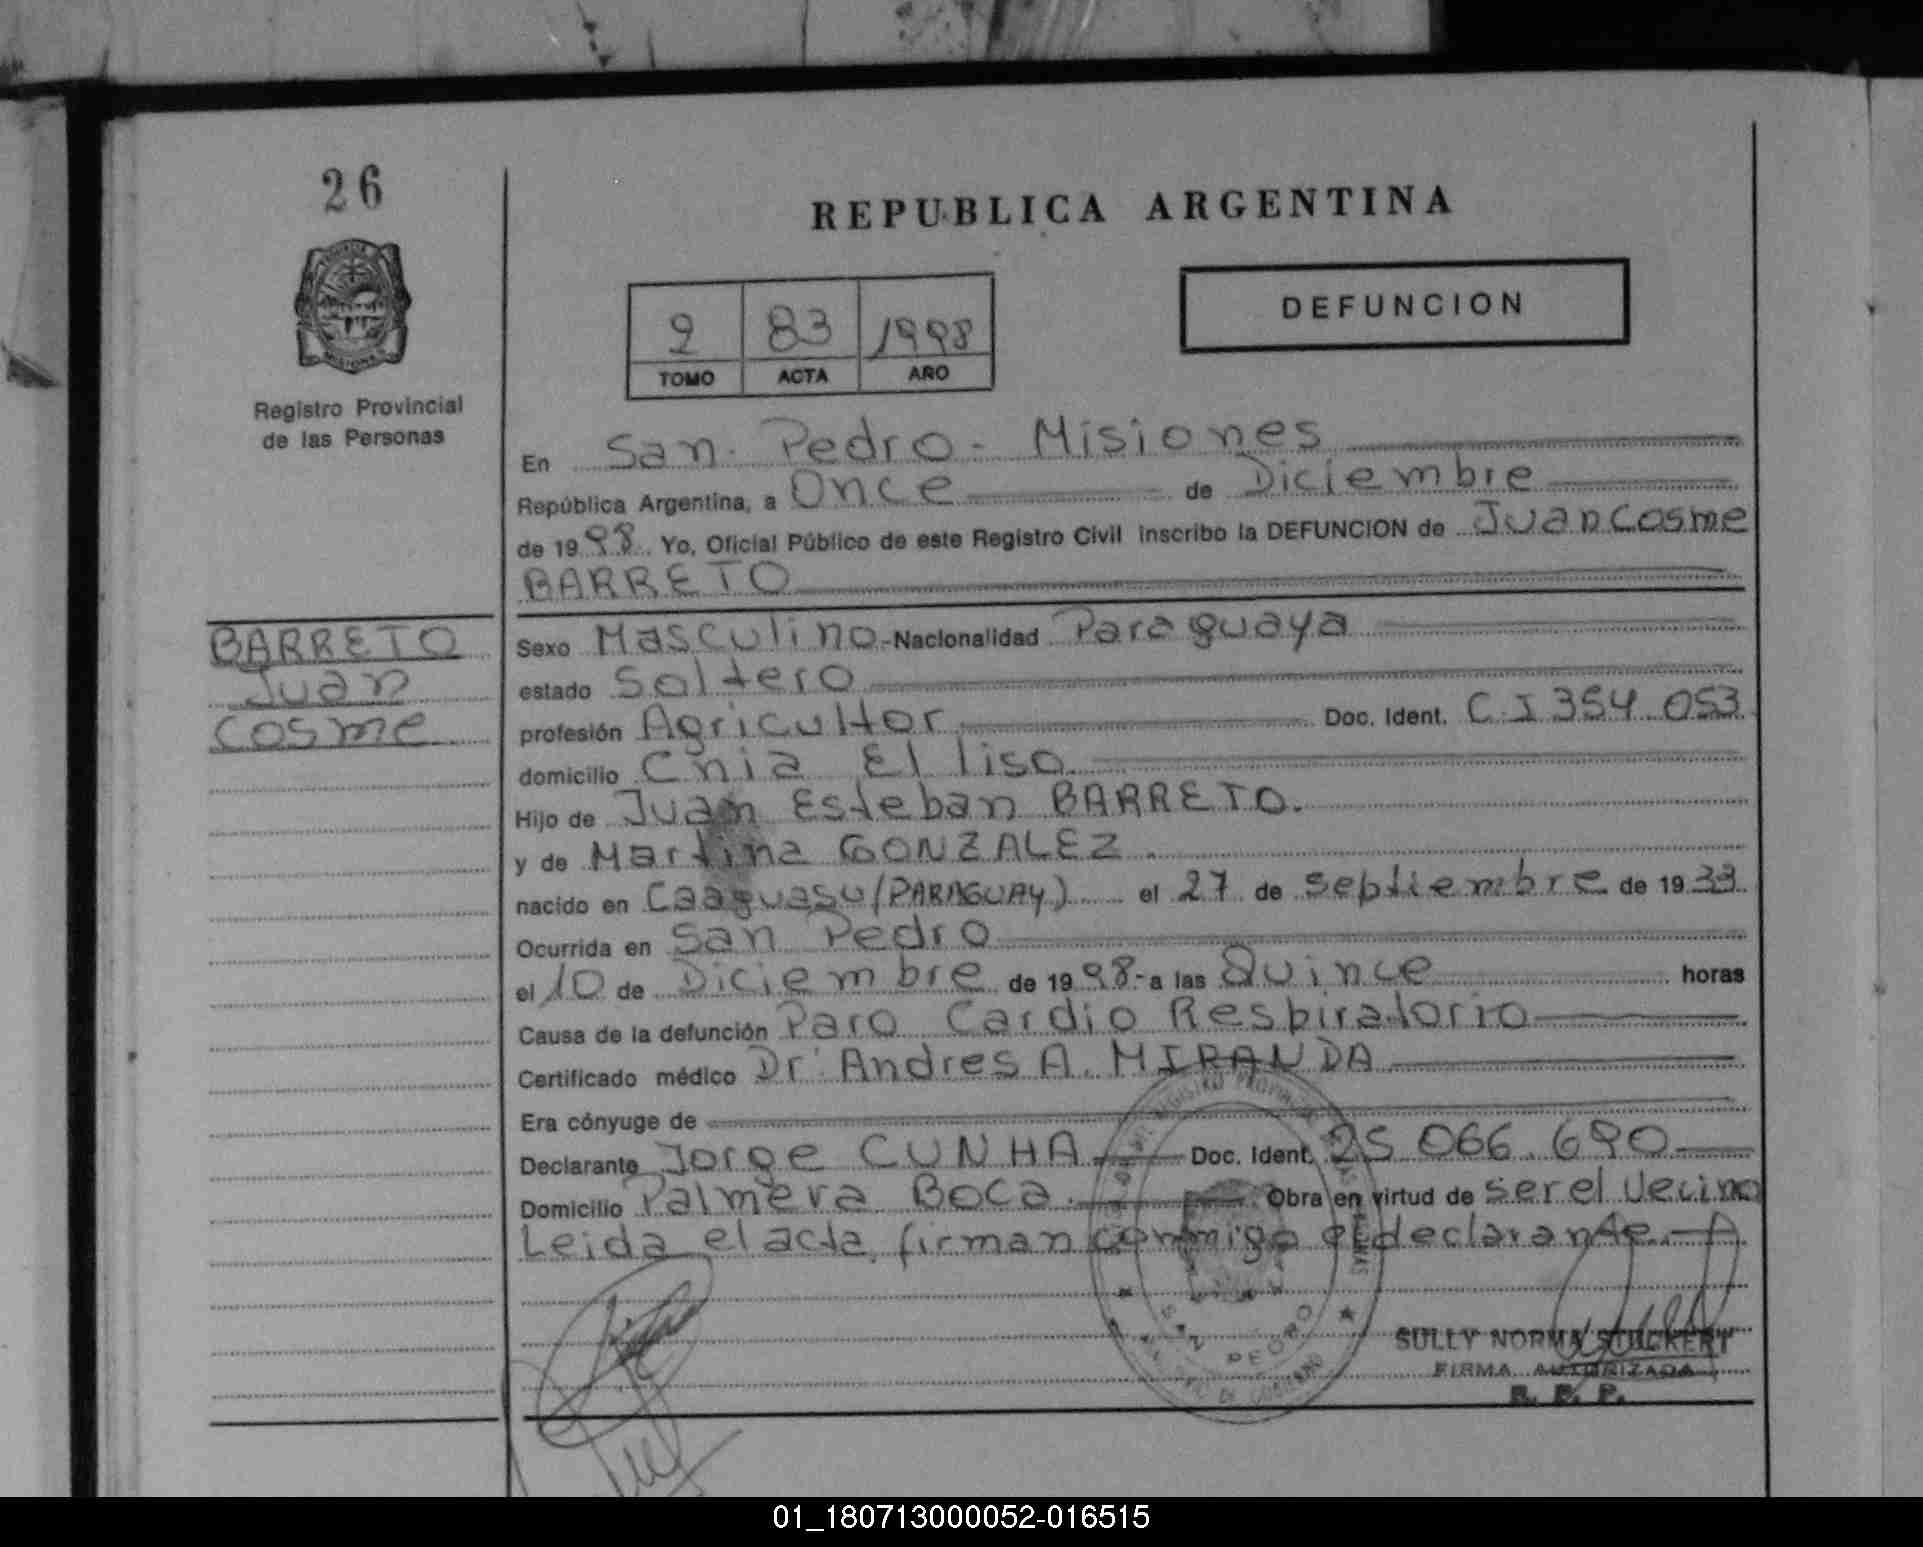 26
REPUBLICA ARGENTINA
DEFUNCION
2 83 1998
TOMO ACTA AÑO
Registro Provincial
de las Personas
En San Pedro - Misiones
República Argentina, a Once de Diciembre
de 1998. Yo, Oficial Público de este Registro Civil inscribo la DEFUNCION de Juan Cosme
BARRETO
BARRETO
Juan
Cosme
Sexo Masculino - Nacionalidad Paraguaya
estado Soltero
profesión Agricultor Doc. Ident. C.I 354.053
domicilio Cnia El liso
Hijo de Juan Esteban BARRETO.
y de Martina GONZALEZ
nacido en Caaguasu (PARAGUAY) el 27 de septiembre de 1933
Ocurrida en San Pedro
el 10 de Diciembre de 1998- a las Quince horas
Causa de la defunción Paro Cardio Respiratorio
Certificado médico Dr. Andres A. MIRANDA
Era cónyuge de
Declarante Jorge CUNHA Doc. Ident. 25.066.690
Domicilio Palmera Boca. Obra en virtud de ser el vecino
Leida el acta, firman conmigo el declarante.
SAN PEDRO
SULLY NORMA STUCKERT
FIRMA AUTORIZADA
R. P. P.
01_180713000052-016515